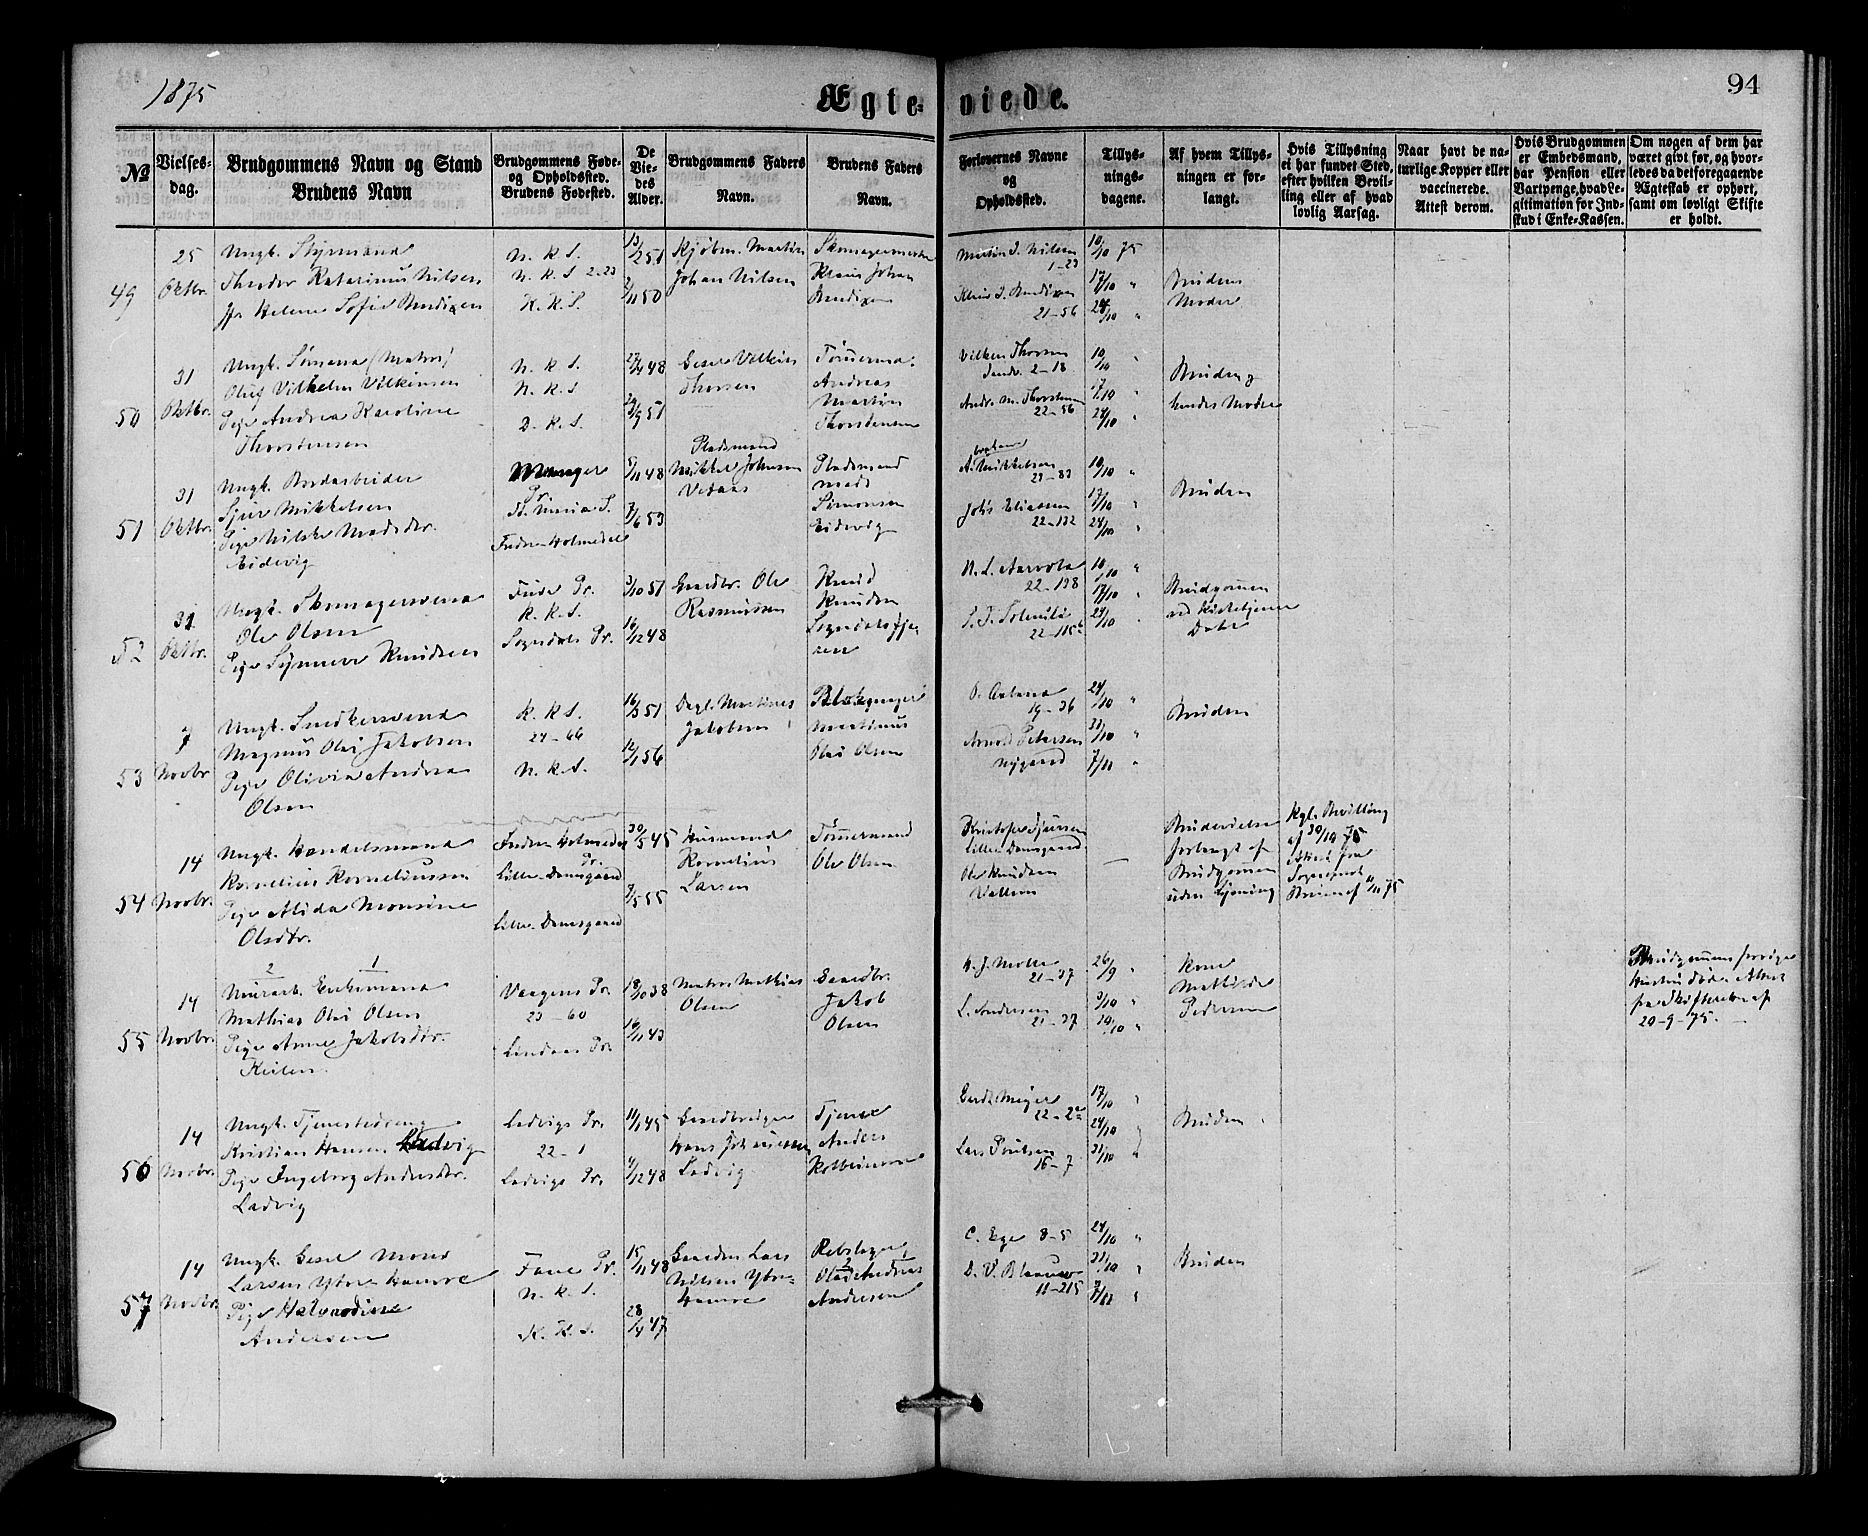 1875
94
Ægte-viede.
№
Vielses-dag.
Brudgommens Navn og Stand
Brudens Navn
Brudgommens Føde- og Opholdssted.
Brudens Fødested.
De Viedes Alder.
Brudgommens Faders Navn.
Brudens Faders Navn.
Forlovernes Navne og Opholdssted.
Tillysningsdagene.
Af hvem Tillysningen er forlangt.
Hvis Tillysning ei har fundet Sted, efter hvilken Bevilling eller af hvad lovlig Aarsag.
Naar havt de naturlige Kopper eller vaccinerede. Attest derom.
Hvis Brudgommen er Embedsmand, har Pension eller Vartpenge, hvad Legitimation for Indskud i Enke-Kassen.
Om nogen af dem har været givt før, og hvorledes da det foregaaende Ægteskab er ophørt, samt om lovligt Skifte er holdt.
49
25 Oktbr.
Ungk. Styrmand
Theodor Katarinus Nilsen
Jfr Helene Sofie Bendixen
N. K. S.
N. K. S 2-23
K. K. S.
13/2 51
2/11 50
Kjøbm. Martin
Johan Nilsen
Skomagermester
Klaus Johan
Bendixen
Martin J. Nilsen
1-23
Klaus J. Bendixen
21-56
10/10 75
17/10 "
24/10 "
Brudens
Moder
50
31 Oktbr.
Ungk. Sømand (Matros)
Oluf Vilhelm Vilkensen
Pige Andrea Karoline
Thorstensen
N. K. S
N. K. S
D. K. S.
27/4 48
29/9 51
Gesel Vilken
Thorsen
Tømmermd.
Andreas
Martin
Thorstensen
Vilken Thorsen
Sandv. 2-18
Andr. M. Thorstensen
22-56
10/10 "
17/10 "
24/10 "
Bruden og
hendes Moder
51
31 Oktbr.
Ungk. Bordarbeider
Sjur Mikkelsen
Pige Nilske Madsdtr.
Eidevig
Manger
Pr.
St. Maria S.
Indre Holmedal
5/11 48
7/6 53
Pladsmand
Mikkel Johnsen
Vedaas
Pladsmand
Mads
Simonsen
Eidevig
A. Mikkelsen
23-83
Johs Eliassen
22-132
10/10 "
17/10 "
24/10 "
Bruden
52
31 Oktbr.
Ungk. Skomagersvend
Ole Olsen
Pige Synneve Knudsen
Finde Pr.
K. K. S.
Sogndals Pr.
3/10 51
16/12 48
Gaardbr. Ole
Rasmussen
Knud
Knudsen
N. L. Aarvola
22-128
22-115
10/10 "
17/10 "
24/10 "
Brudgommen
ved Kirketjener
Dahl
53
7 Novbr
Ungk. Snedkersvend
Magnus Olai Jakobsen
Pige Olivia Andrea
Olsen
K. K S.
24-66
N. K. S.
16/3 51
12/1 56
Dagl. Martines
Jakobsen
Blokmager
Martinus
Olai Olsen
19-36
Arnold Petersen
Nygaard
24/10 "
31/10 "
7/11 "
Bruden
54
14 Novbr.
Ungk. Handelsmand
Kornelius Korneliussen
Pige Alida Monsine
Olsdtr.
Indre Holmedal
Pr.
Lille-Damsgaard
Lille-Damsgaard
30/5 45
7/5 55
Husmand
Kornelius
Larsen
Tømmermand
Ole Olsen
Lille Damsgaard
Ole Knudsen
—
Brudevielse
forlangt af
Brudgommen
uden Lysning
Kgl. Bevilling
af 30/10 75
Attest fra
Sognepræst
55
14 Novbr.
2 1
Murarb. Enkemand
Mathias Olai Olsen
Pige Anne Jakobsdtr.
Keilen
Vaagens Pr.
23-60
Lindaas Pr.
18/10 38
16/11 43
Matros Mathias
Olsen
Gaardbr.
Jakob
Olsen
H. J. Molle
21-37
L. Andersen
21-37
26/9 "
3/10 "
10/10 "
Kone
Mathilde
Pedersen
Brudgommens forrige
Hustru død. Attest
fra Skifteretten af
20-9-75.
56
14 Novbr.
Ungk. Tjenestedreng
Kristian Hansen Ladvig
Pige Ingeborg Andersdtr.
Ladvig
Ladvigs Pr.
22-1
Ladvigs Pr.
11/1 45
4/12 48
Gaardbruger
Hans Johannessen
Ladvig
Tjener
Anders
Gerdt Meyer
22-2
Lars Poulsen
16-7
17/10 "
24/10 "
31/10 "
Bruden
57
14 Novbr.
Ungk. Gesel Mons
Larsen Ytre Hamre
Pige Halvardine
Andersen
Fane Pr.
N. K. S.
K. K. S.
15/11 48
28/4 47
Gaardm. Lars
Nilsen Ytre
Hamre
Rebslager
Olai Andreas
Andersen
C. Ege 8-5
D. V. Blaauw
11-215
24/10 "
31/10 "
7/11 "
Bruden